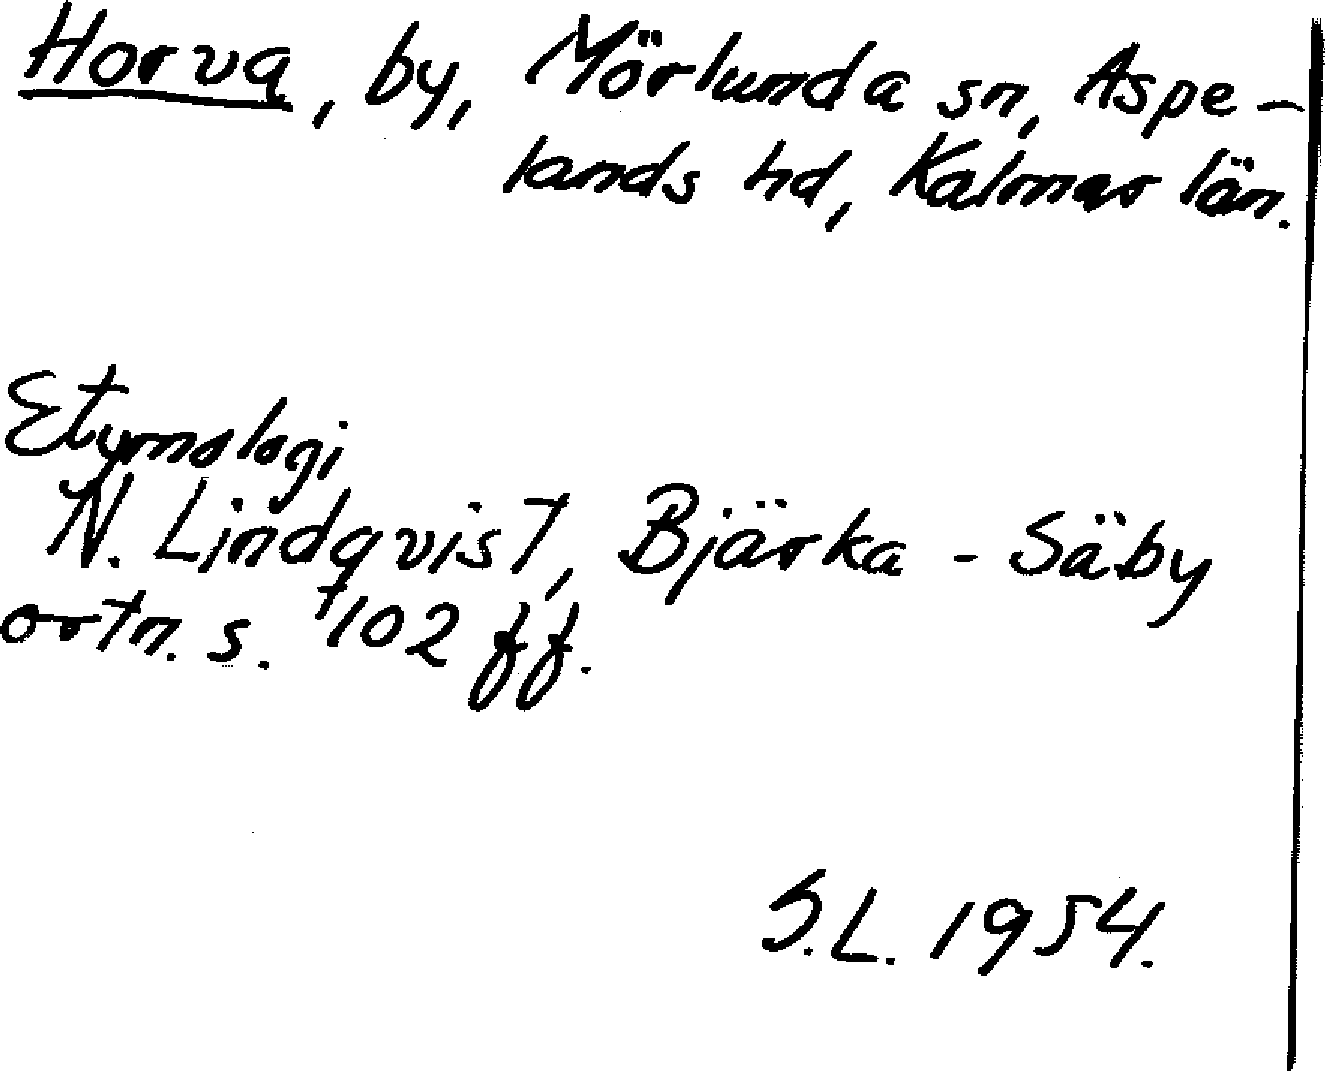 Horva, by, Mörlunda sn, Aspe-
lands hd, Kalmar län.
Etymologi
N. Lindqvist, Bjärka-Säby
ortn. s. 102 ff.
S.L. 1954.